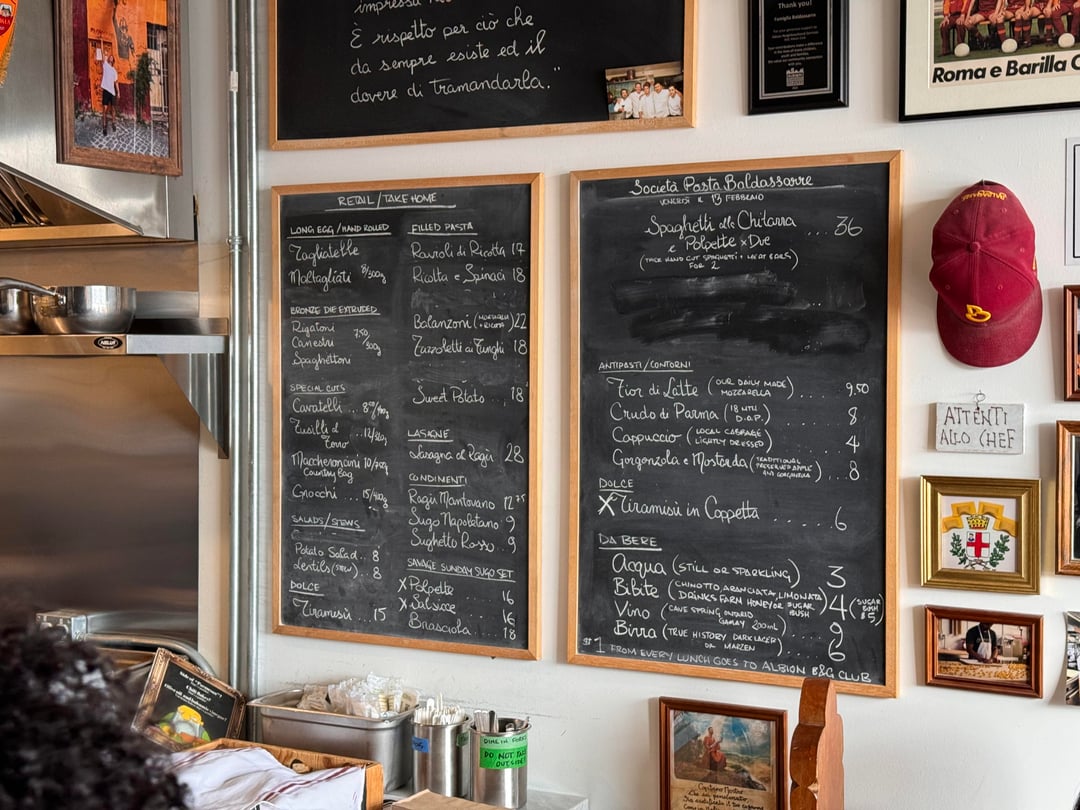 È rispetto per ciò che
da sempre esiste ed il
dovere di tramandarla."
Thank you!
Famiglia Baldassarre
Roma e Barilla
RETAIL / TAKE HOME
LONG EGG / HAND ROLLED
Tagliatelle
Maltagliati 8/300g
BRONZE DIE EXTRUDED
Rigatoni
Canestri 7,50/300g
Spaghettoni
SPECIAL CUTS
Cavatelli .. 8⁵⁰/400g
Fusilli al
Ferro ..12/
Maccheroncini 10/400g
Country Bag
Gnocchi ... 15/400g
SALADS/STEWS
Potato Salad .. 8
Lentils (STEW) .. 8
DOLCE
Tiramesù 15
FILLED PASTA
Ravioli di Ricotta 17
Ricotta e Spinaci 18
Balanzoni (MORTADELLA + RICOTTA) 22
Fazzoletti ai Funghi 18
Sweet Potato ... 18
LASAGNE
Lasagna al Ragù 28
CONDIMENTI
Ragù Mantovano 12.⁷⁵
Sugo Napoletano . 9
Sughetto Rosso .. 9
SAVAGE SUNDAY SUGO SET
X Polpette 16
X Salsicce 16
Brasciola . 18
Società Pasta Baldassarre
VENERDÌ IL 13 FEBBRAIO
Spaghetti alla Chitarra ... 36
e Polpette x Due
(THICK HAND CUT SPAGHETTI + MEAT BALLS)
FOR 2
ANTIPASTI / CONTORNI
Fior di Latte (OUR DAILY MADE MOZZARELLA) 9,50
Crudo di Parma (18 MTH D.O.P.) 8
Cappuccio (LOCAL CABBAGE LIGHTLY DRESSED) 4
Gorgonzola e Mostarda (TRADITIONAL PRESERVED APPLE AND GORGONZOLA) . 8
DOLCE
X Tiramisù in Coppetta ..... 6
DA BERE
Acqua (STILL OR SPARKLING) 3
Bibite (CHINOTTO, ARANCIATA, LIMONATA DRINKS FARM HONEY OR SUGAR BUSH) 4 (SUGAR BUSH $5)
Vino (CAVE SPRING ONTARIO GAMAY 200mL) ... 9
Birra (TRUE HISTORY DARK LAGER OR MARZEN) .... 6
$1 FROM EVERY LUNCH GOES TO ALBION B&G CLUB
ATTENTI
ALLO CHEF
DO NOT TAKE
OUTSIDE